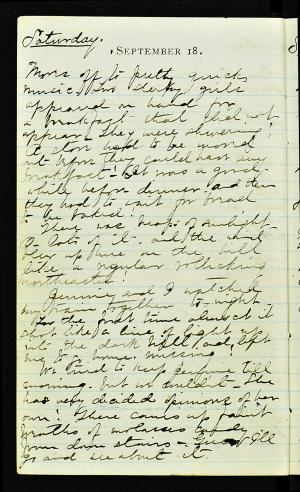 Saturday.
, SEPTEMBER 18.
Move off to pretty quick
music. Two sleepy girls
appeared on hand for
a breakfast that did not
appear. They were shivering!
A stove had to be moved
out before they could have any
breakfast! It was a good
while before dinner and then
they had to wait for bread
to be baked!
There was heaps of sunlight
lots of it and the wind
blew up here on the hill
like a regular rollicking
northeaster!
Jennie and I watched
train together to-night.
For the first time almost it
like a line of light up
into the dark and left
me to home, missing!
We tried to keep
morning. but we couldn't. She
has very decided opinions of her
own! There comes up faint
breaths of molasses candy
from down stairs - Guess I'll
go and see about it.